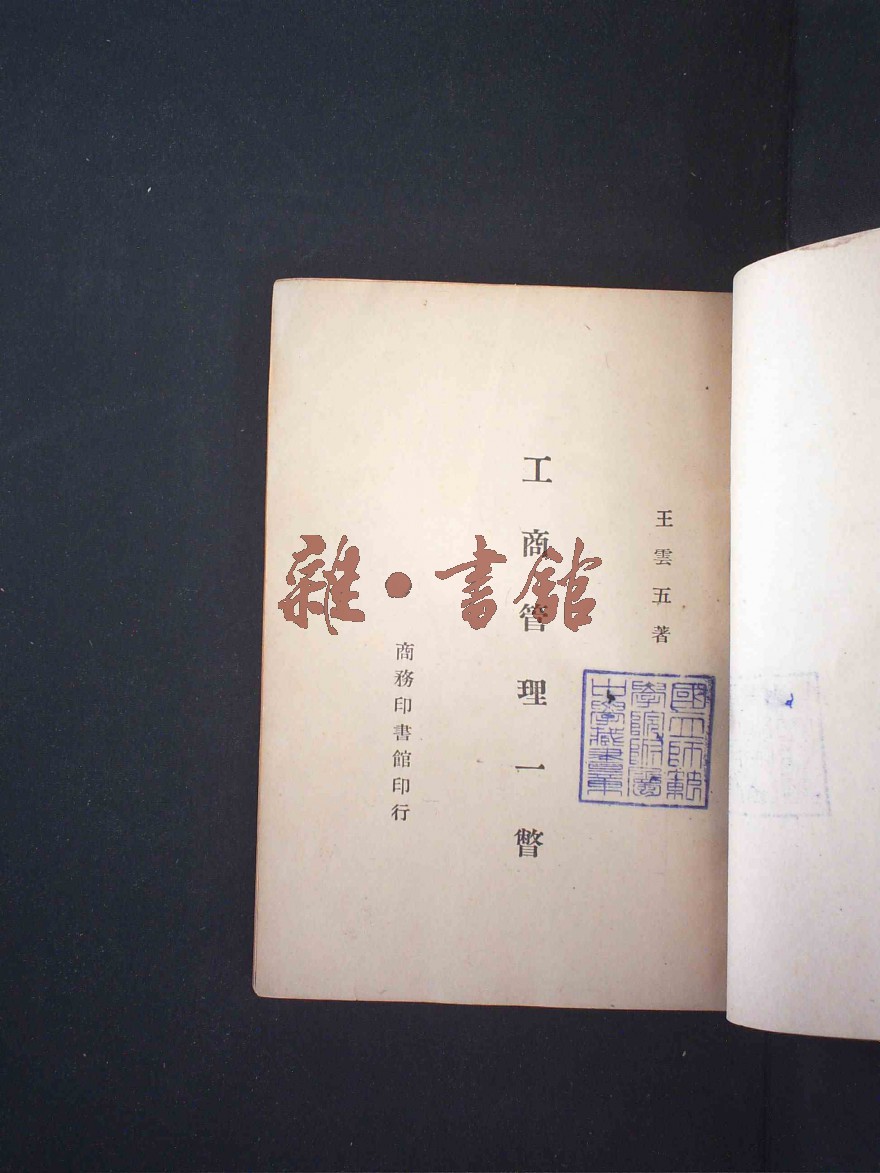 王雲五著
工商管理一瞥
商務印書館印行
國立師範
學院附屬
中學藏書章
雜·書館